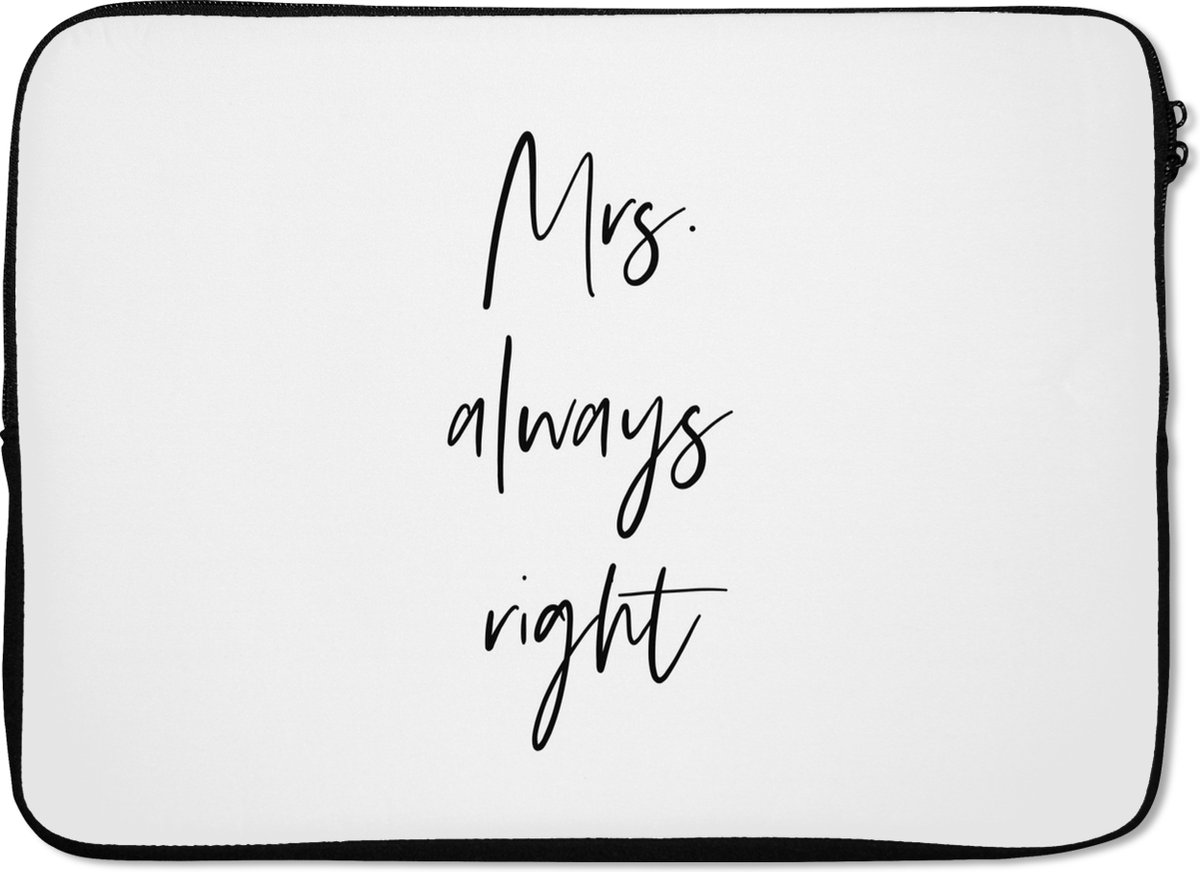 Mrs.
always
right